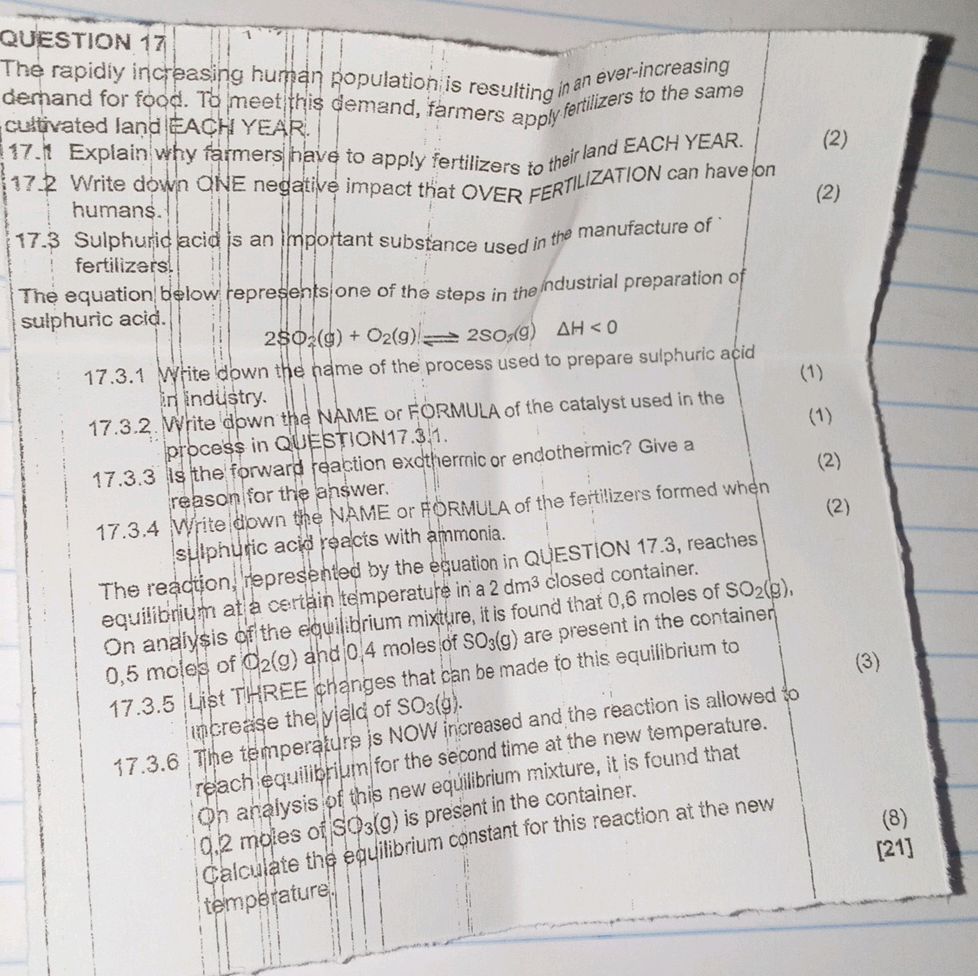 QUESTION 17
The rapidly increasing human population is resulting in an ever-increasing
demand for food. To meet this demand, farmers apply fertilizers to the same
cultivated land EACH YEAR.
17.1 Explain why farmers have to apply fertilizers to their land EACH YEAR. (2)
17.2 Write down ONE negative impact that OVER FERTILIZATION can have on
humans. (2)
17.3 Sulphuric acid is an important substance used in the manufacture of
fertilizers.
The equation below represents one of the steps in the industrial preparation of
sulphuric acid.
2SO₂(g) + O₂(g) ⇌ 2SO₃(g) ΔH < 0
17.3.1 Write down the name of the process used to prepare sulphuric acid
in industry. (1)
17.3.2 Write down the NAME or FORMULA of the catalyst used in the
process in QUESTION17.3.1. (1)
17.3.3 Is the forward reaction exothermic or endothermic? Give a
reason for the answer. (2)
17.3.4 Write down the NAME or FORMULA of the fertilizers formed when
sulphuric acid reacts with ammonia. (2)
The reaction, represented by the equation in QUESTION 17.3, reaches
equilibrium at a certain temperature in a 2 dm³ closed container.
On analysis of the equilibrium mixture, it is found that 0,6 moles of SO₂(g),
0,5 moles of O₂(g) and 0,4 moles of SO₃(g) are present in the container
17.3.5 List THREE changes that can be made to this equilibrium to
increase the yield of SO₃(g). (3)
17.3.6 The temperature is NOW increased and the reaction is allowed to
reach equilibrium for the second time at the new temperature.
On analysis of this new equilibrium mixture, it is found that
0,2 moles of SO₃(g) is present in the container.
Calculate the equilibrium constant for this reaction at the new
temperature. (8)
[21]